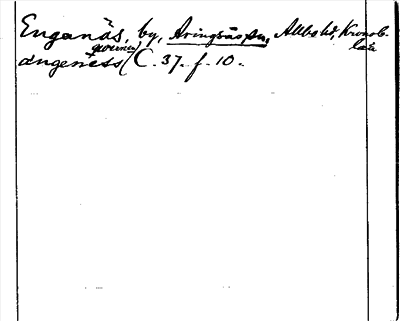 Enganäs, by, Aringsås sn, Allbo hd, Kronob.
län
ängenëss (C. 37. f. 10.